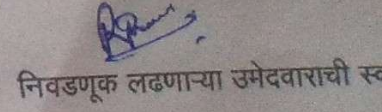 निवडणूक लढणाऱ्या उमेदवाराची